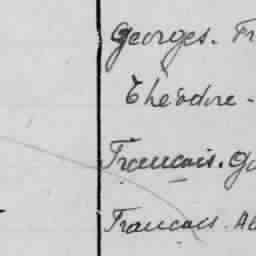 Georges. Fr
Théodore -
Francois. Ga
Francois. Al